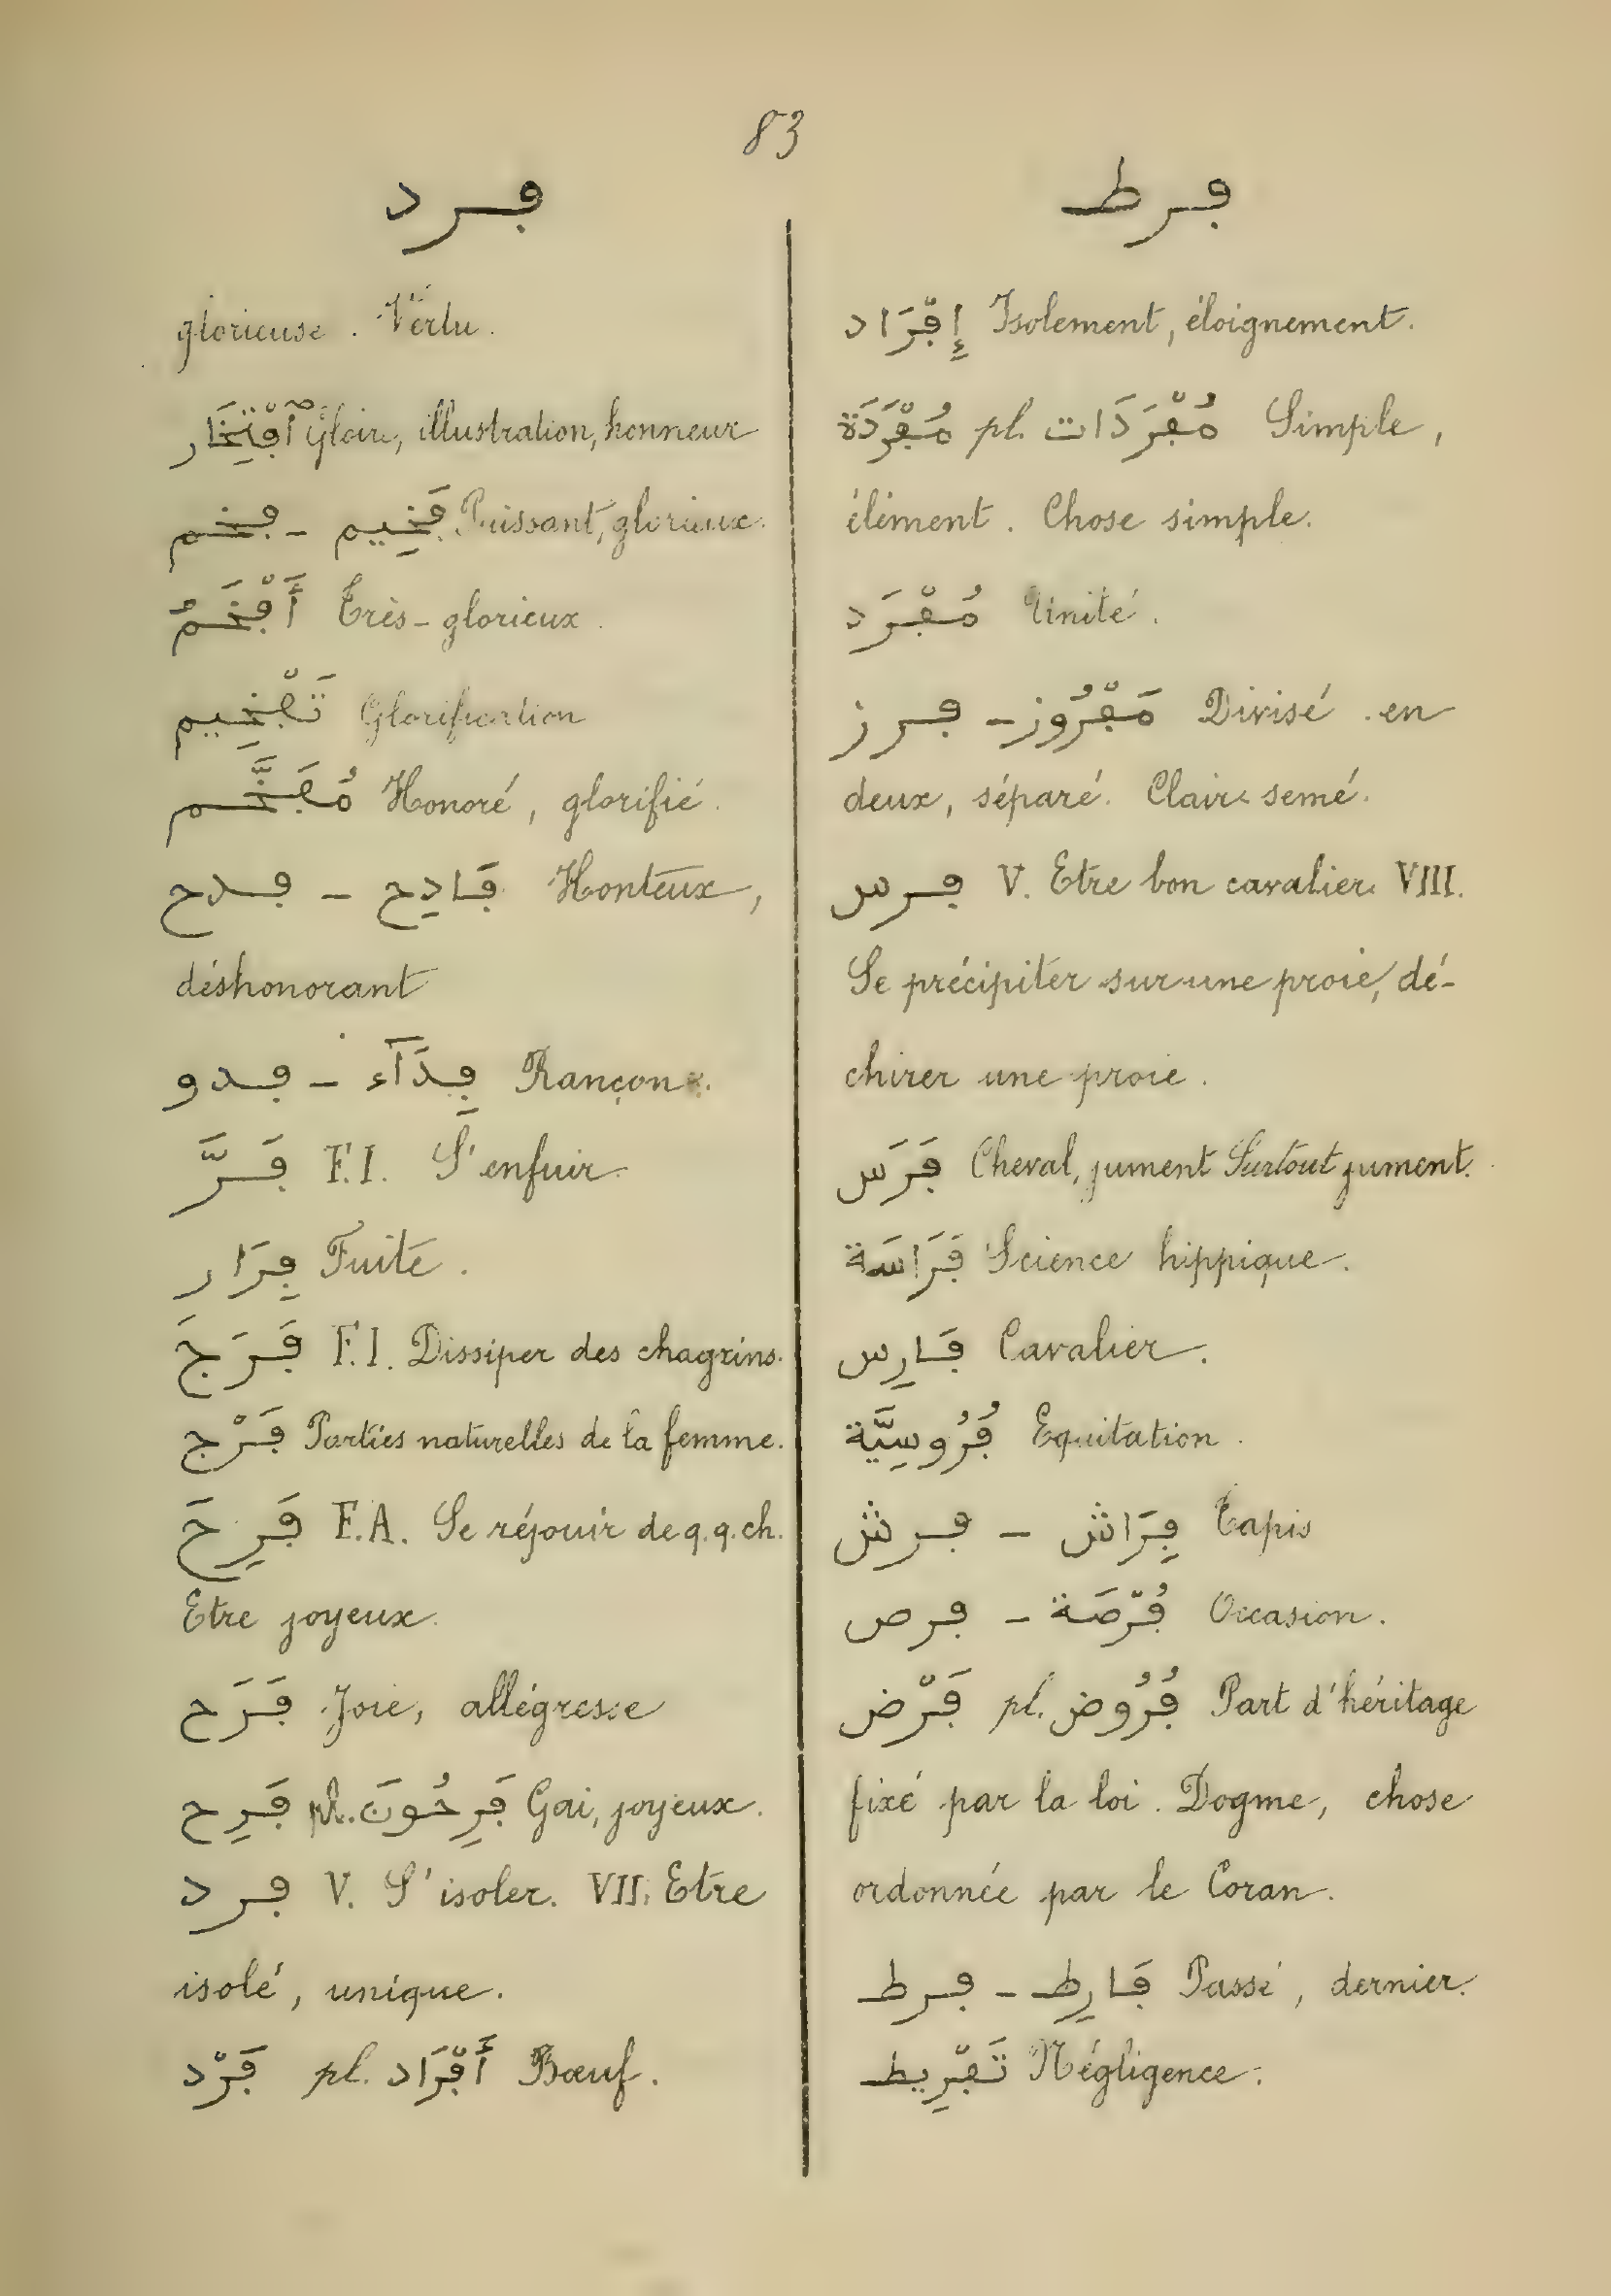 83
ڢرد
glorieuse. Vertu.
ٱڢْتِخَار Gloire, illustration, honneur
ڢخم - ڢَخِيم Puissant, glorieux.
أَڢْخَمُ Très-glorieux.
تَڢْخِيم Glorification
مُڢَخَّم Honoré, glorifié.
ڢدح - ڢَادِح Honteux,
déshonorant
ڢدو - ڢِدَآء Rançon.
ڢَرَّ F.I. S'enfuir.
ڢِرَار Fuite.
ڢَرَجَ F.I. Dissiper des chagrins.
ڢَرْج Parties naturelles de la femme.
ڢَرِحَ F.A. Se réjouir de q.q.ch.
Etre joyeux.
ڢَرَح Joie, allégresse
ڢَرِح pl. ڢَرِحُونَ Gai, joyeux.
ڢرد V. S'isoler. VII. Etre
isolé, unique.
ڢَرْد pl. أَڢْرَاد Bœuf.
ڢرط
إِڢْرَاد Isolement, éloignement.
مُڢْرَدَة pl. مُڢْرَدَات Simple,
élément. Chose simple.
مُڢْرَد Unité.
ڢرز - مَڢْرُوز Divisé en
deux, séparé. Clair semé.
ڢرس V. Etre bon cavalier. VIII.
Se précipiter sur une proie, dé-
chirer une proie.
ڢَرَس Cheval, jument Surtout jument.
ڢَرَاسَة Science hippique.
ڢَارِس Cavalier.
ڢُرُوسِيَّة Equitation.
ڢرش - ڢِرَاش Tapis
ڢرص - ڢُرْصَة Occasion.
ڢَرْض pl. ڢُرُوض Part d'héritage
fixé par la loi. Dogme, chose
ordonnée par le Coran.
ڢرط - ڢَارِط Passé, dernier.
تَڢْرِيط Négligence.